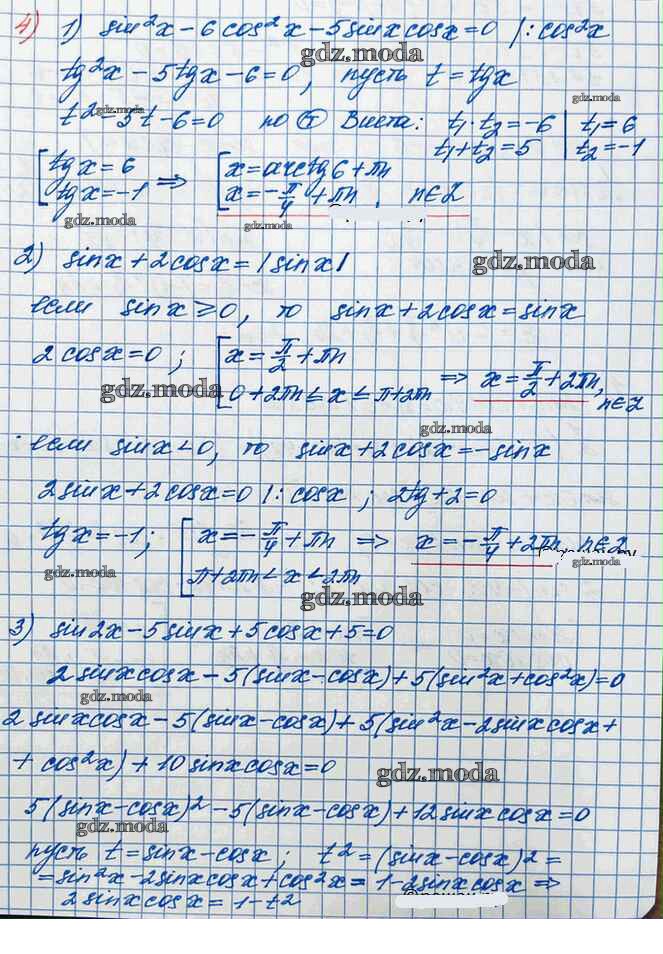 4) 1) sin²x - 6cos²x - 5sinxcosx = 0 |: cos²x
gdz.moda
tg²x - 5tgx - 6 = 0, пусть t = tgx
gdz.moda gdz.moda
t² - 5t - 6 = 0 по Т Виета: t₁·t₂ = -6 | t₁ = 6
t₁ + t₂ = 5 | t₂ = -1
gdz.moda gdz.moda
[tgx = 6 => [x = arctg6 + πn
[tgx = -1 [x = -π/4 + πn, n∈Z
gdz.moda gdz.moda
2) sinx + 2cosx = |sinx|
gdz.moda
если sinx ≥ 0, то sinx + 2cosx = sinx
2cosx = 0; [x = π/2 + πn
[0 + 2πn ≤ x ≤ π + 2πn => x = π/2 + 2πn, n∈Z
gdz.moda
если sinx < 0, то sinx + 2cosx = -sinx
gdz.moda
2sinx + 2cosx = 0 |: cosx; 2tg + 2 = 0
tgx = -1; [x = -π/4 + πn => x = -π/4 + 2πn, n∈Z
[π + 2πn < x < 2πn
gdz.moda gdz.moda gdz.moda
3) sin2x - 5sinx + 5cosx + 5 = 0
2sinxcosx - 5(sinx - cosx) + 5(sin²x + cos²x) = 0
gdz.moda
2sinxcosx - 5(sinx - cosx) + 5(sin²x - 2sinxcosx +
+ cos²x) + 10sinxcosx = 0
gdz.moda
5(sinx - cosx)² - 5(sinx - cosx) + 12sinxcosx = 0
gdz.moda
пусть t = sinx - cosx; t² = (sinx - cosx)² =
= sin²x - 2sinxcosx + cos²x = 1 - 2sinxcosx =>
2sinxcosx = 1 - t²